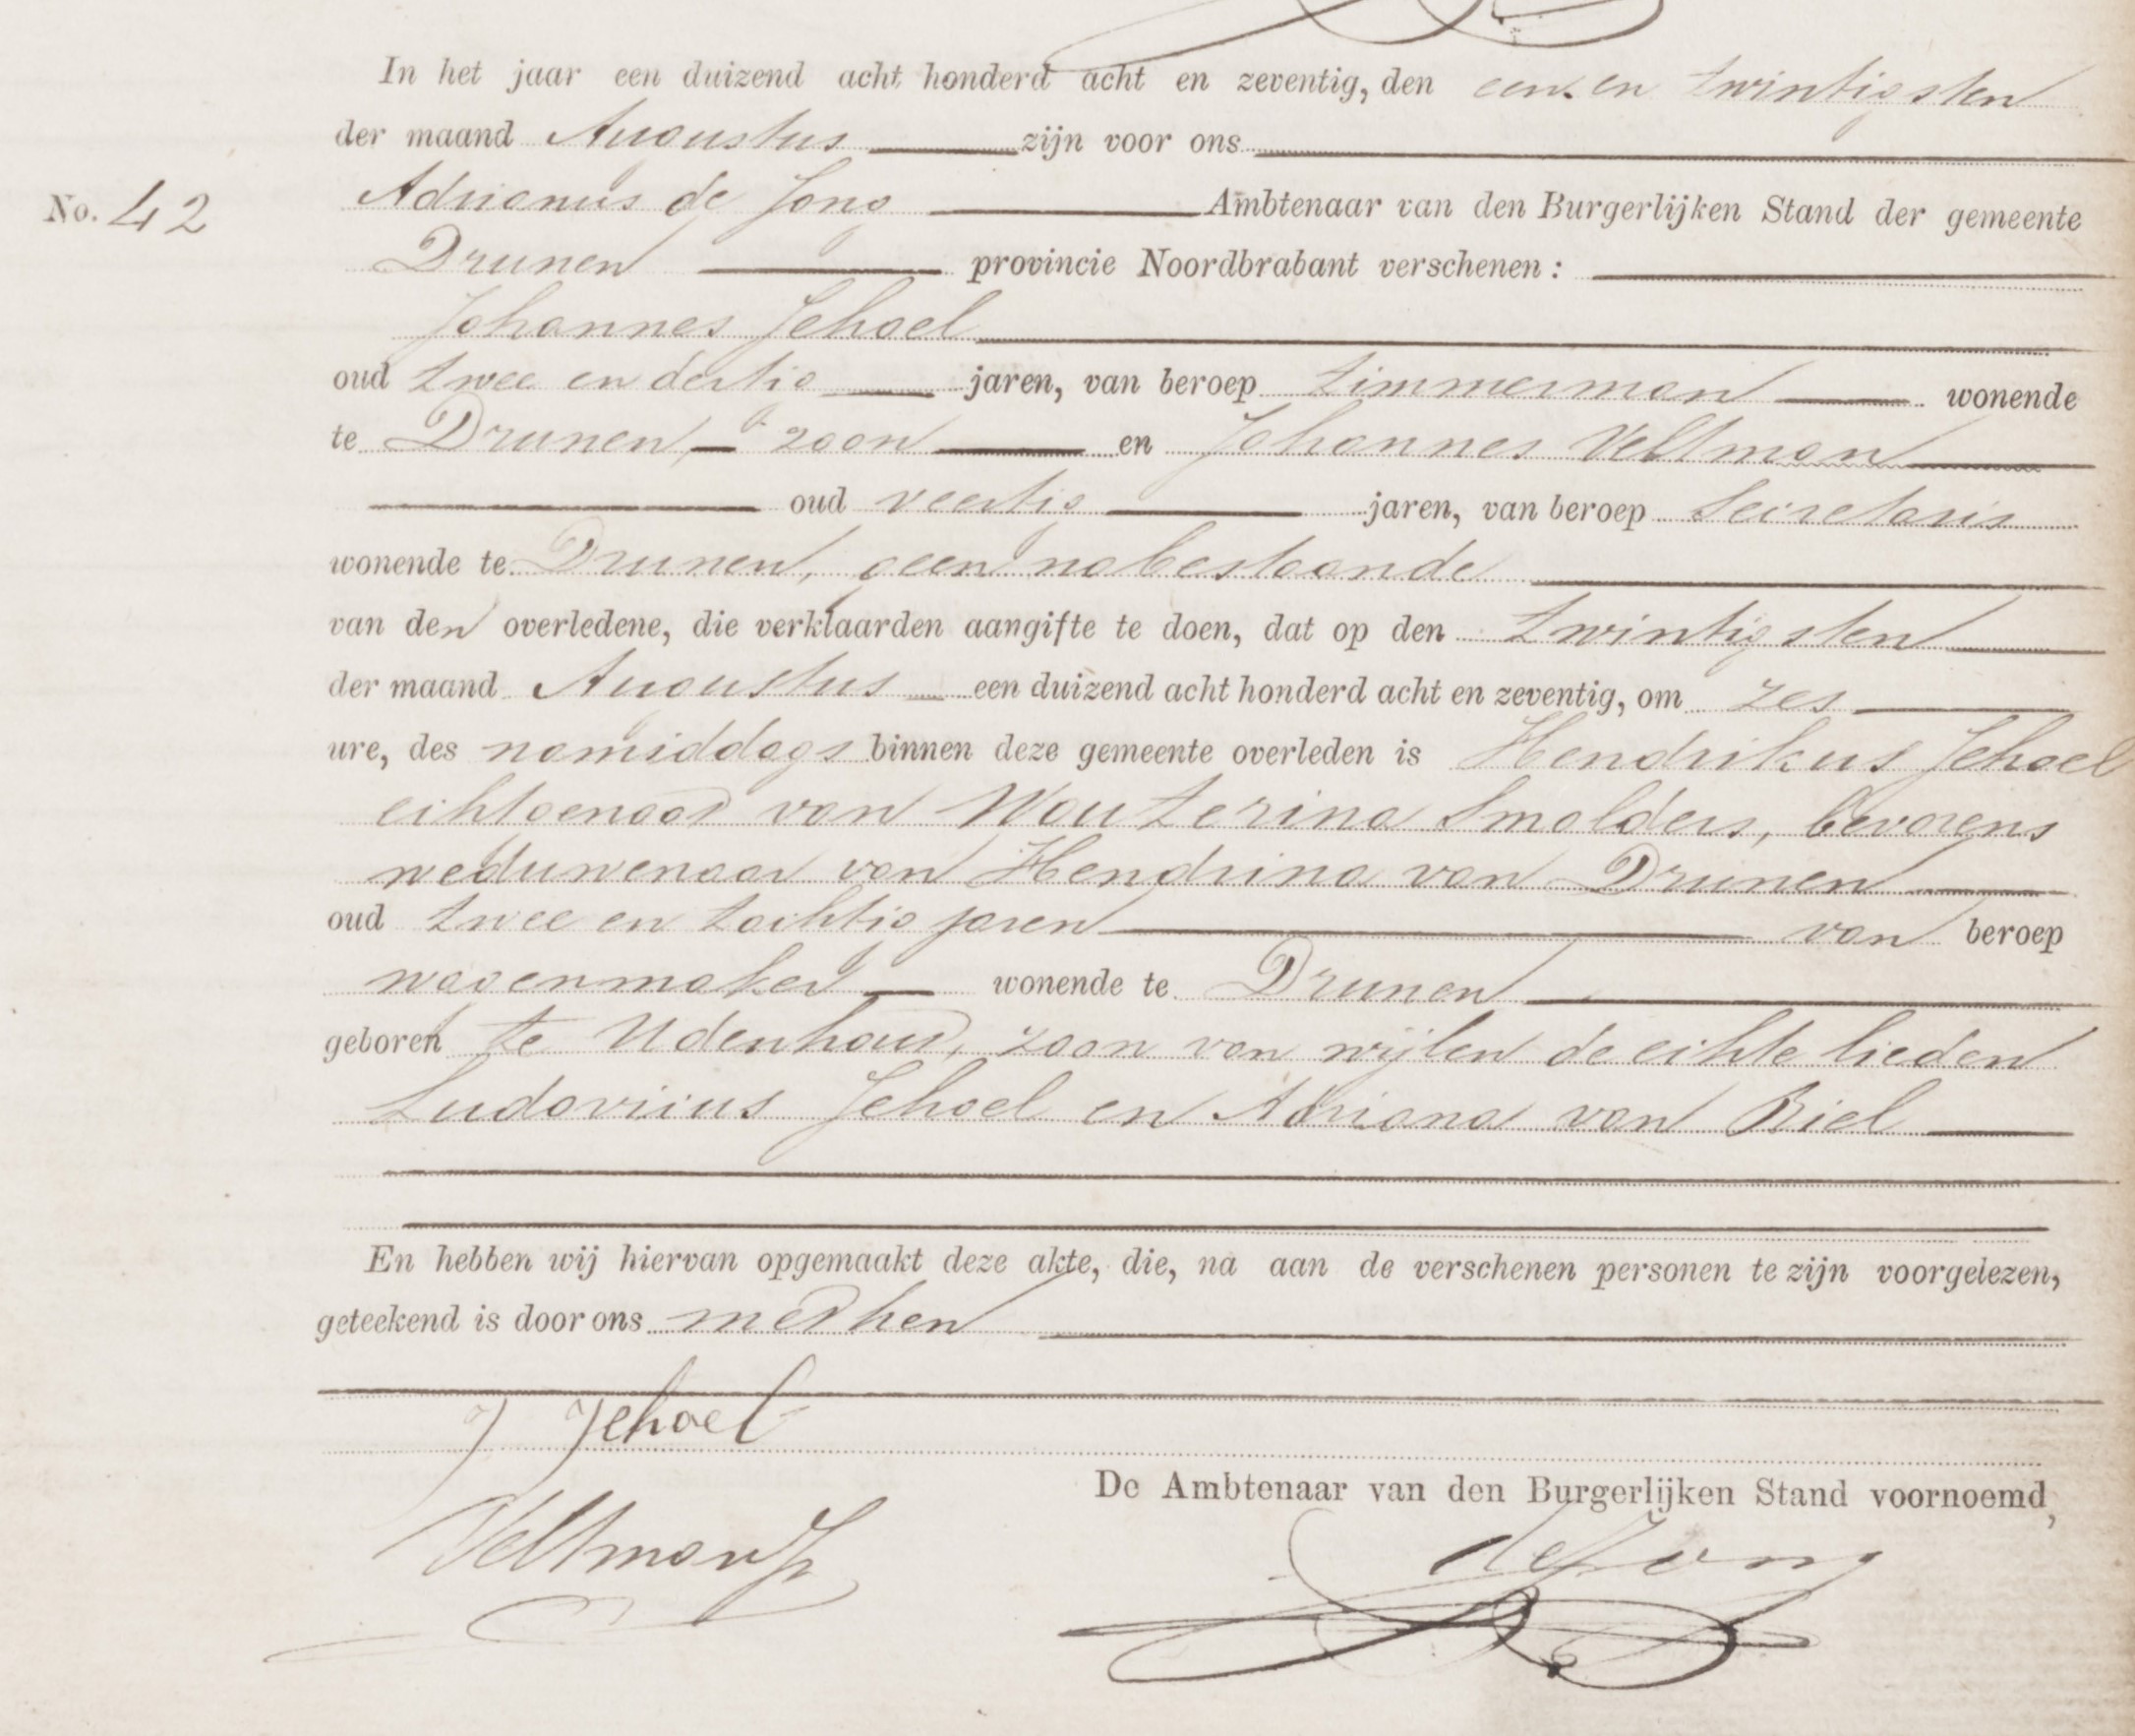 In het jaar een duizend acht honderd acht en zeventig, den een en twintigsten
der maand Augustus zijn voor ons
No. 42 Adrianus de Jong Ambtenaar van den Burgerlijken Stand der gemeente
Drunen provincie Noordbrabant verschenen :
Johannes Jehoel
oud twee en dertig jaren, van beroep timmerman wonende
te Drunen, zoon en Johannes Veltman
oud veertig jaren, van beroep Secretaris
wonende te Drunen, geen nabestaande
van den overledene, die verklaarden aangifte te doen, dat op den twintigsten
der maand Augustus een duizend acht honderd acht en zeventig, om zes
ure, des namiddags binnen deze gemeente overleden is Hendrikus Jehoel
echtgenoot van Wouterina Smolders, bevorens
weduwenaar van Hendrina van Drunen
oud twee en tachtig jaren van beroep
wagenmaker wonende te Drunen
geboren te Udenhout, zoon van wijlen de echte lieden
Ludovicus Jehoel en Adriana van Riel
En hebben wij hiervan opgemaakt deze akte, die, na aan de verschenen personen te zijn voorgelezen,
geteekend is door ons met hen
J Jehoel
De Ambtenaar van den Burgerlijken Stand voornoemd,
Veltman
de Jong